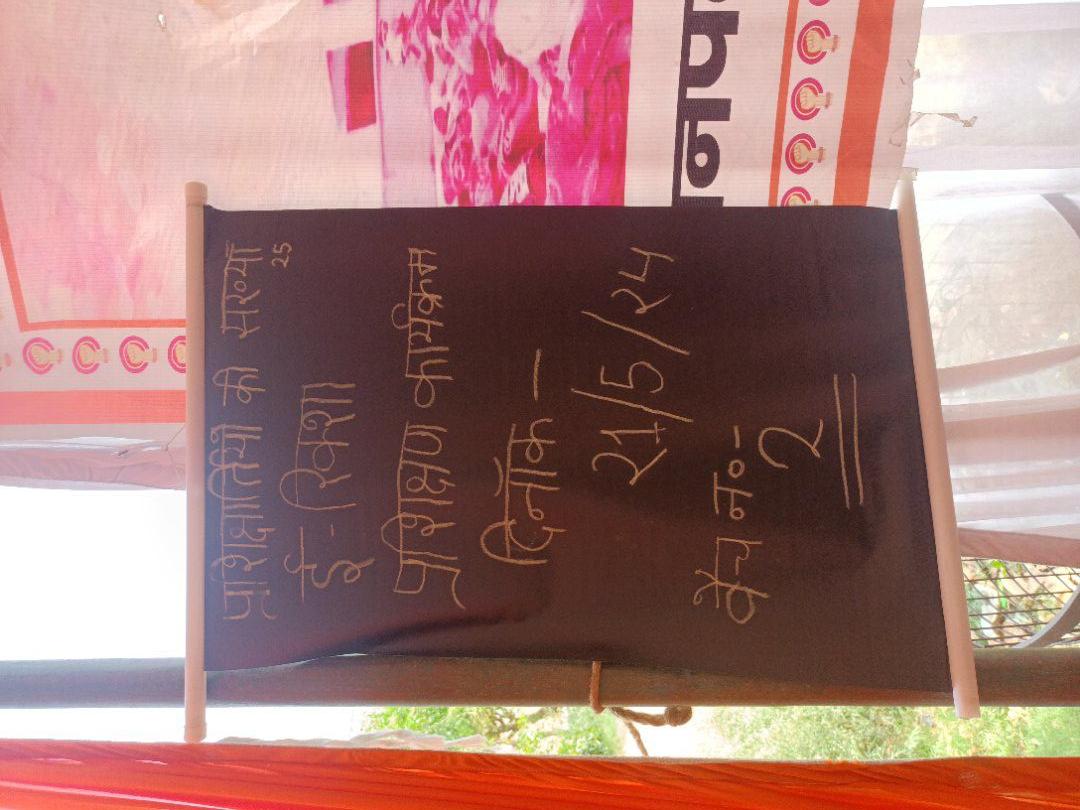 प्रशिक्षार्तियो की सख्याँ
25
ई-रिक्शा
प्रशिक्षण कार्यक्रम
दिनाँक -
21/5/24
बैच नं०-
2